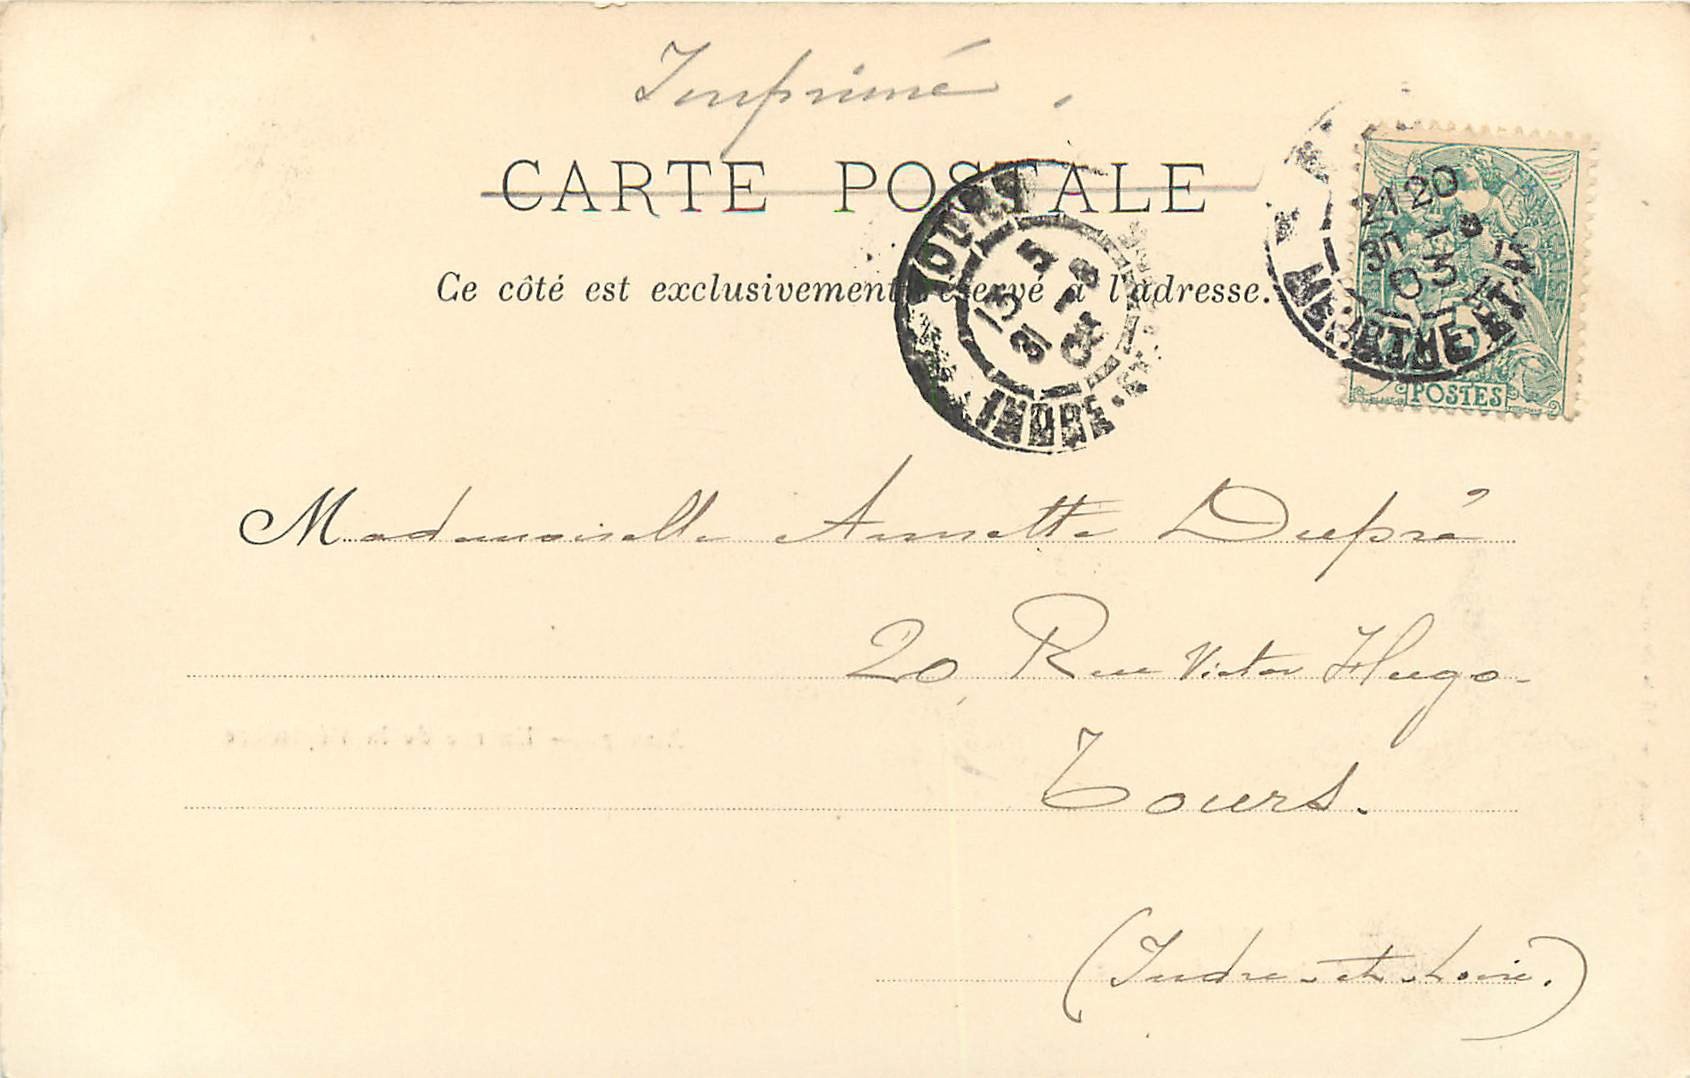 Imprimé.
CARTE POSTALE
Ce côté est exclusivement réservé à l'adresse.
21 20
30 -3
03
POSTES
INDRE
Mademoiselle Annette Dupré
20 Rue Victor Hugo.
Tours.
(Indre-et-Loire.)